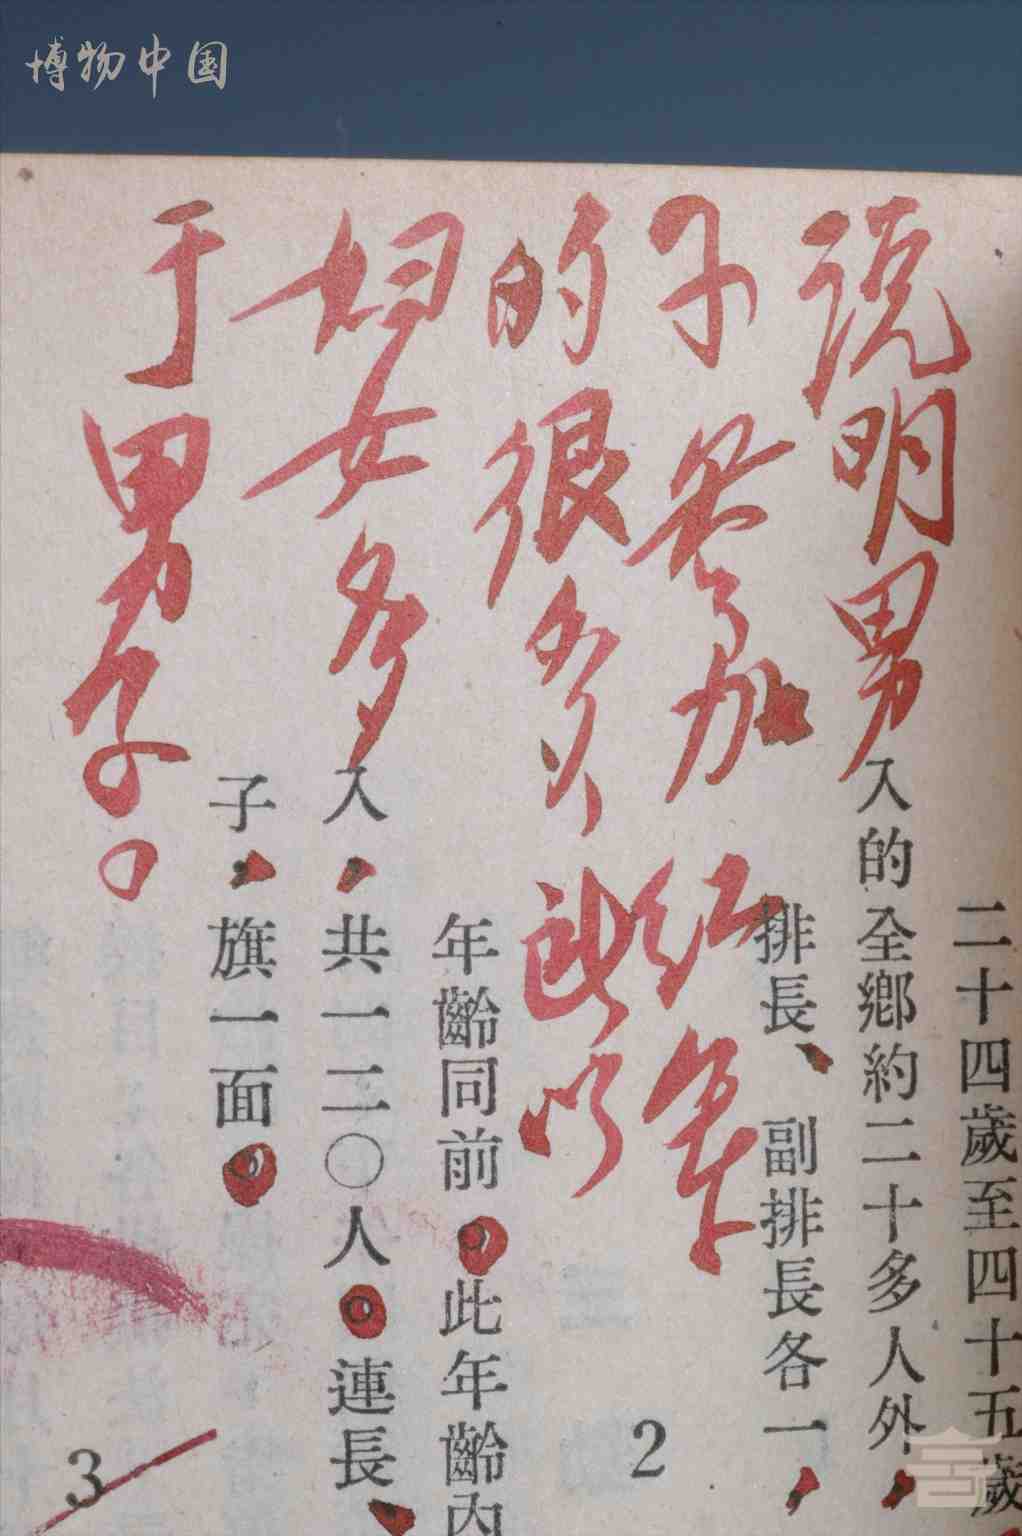 博物中国
说明男
子参加红军
的很多，所以
妇女多
于男子。
二十四歲至四十五歲
入的全鄉約二十多人外，
排長、副排長各一，
2
年齡同前。此年齡內
入，共一二〇人。連長、
子，旗一面。
3